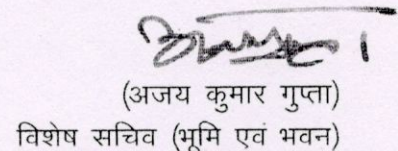 (अजय कुमार गुप्ता)
विशेष सचिव (भूमि एवं भवन)